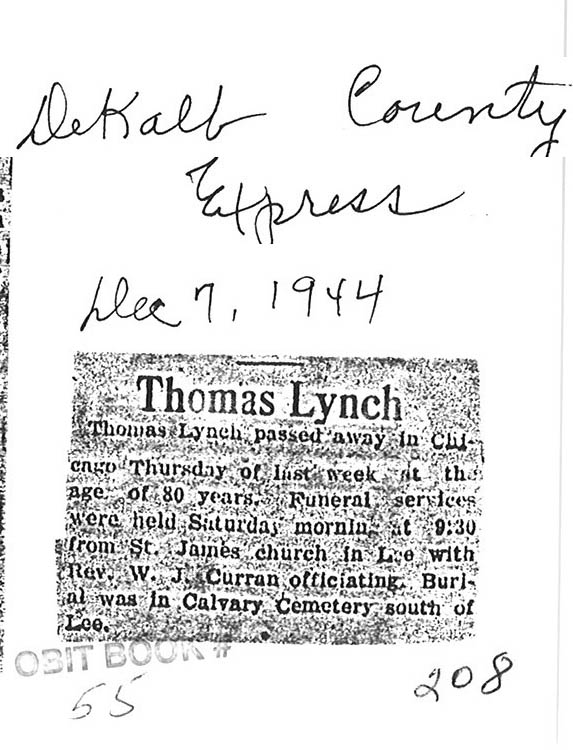 DeKalb County
Express
Dec 7, 1944
Thomas Lynch
Thomas Lynch passed away in Chi-
cago Thursday of last week at the
age of 80 years. Funeral services
were held Saturday morning at 9:30
from St. James church in Lee with
Rev. W. J. Curran officiating. Buri-
al was in Calvary Cemetery south of
Lee.
OBIT BOOK #
55
208